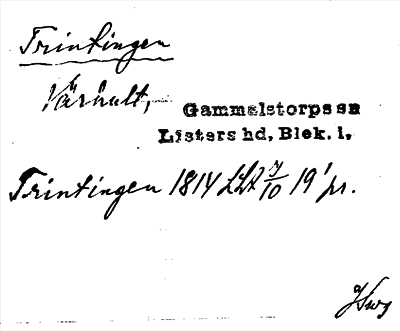 Trintingen
Vårhult, Gammelstorps sn
Listers hd, Blek. l.
Trintingen 1814 LLA 7/10 19' pr.